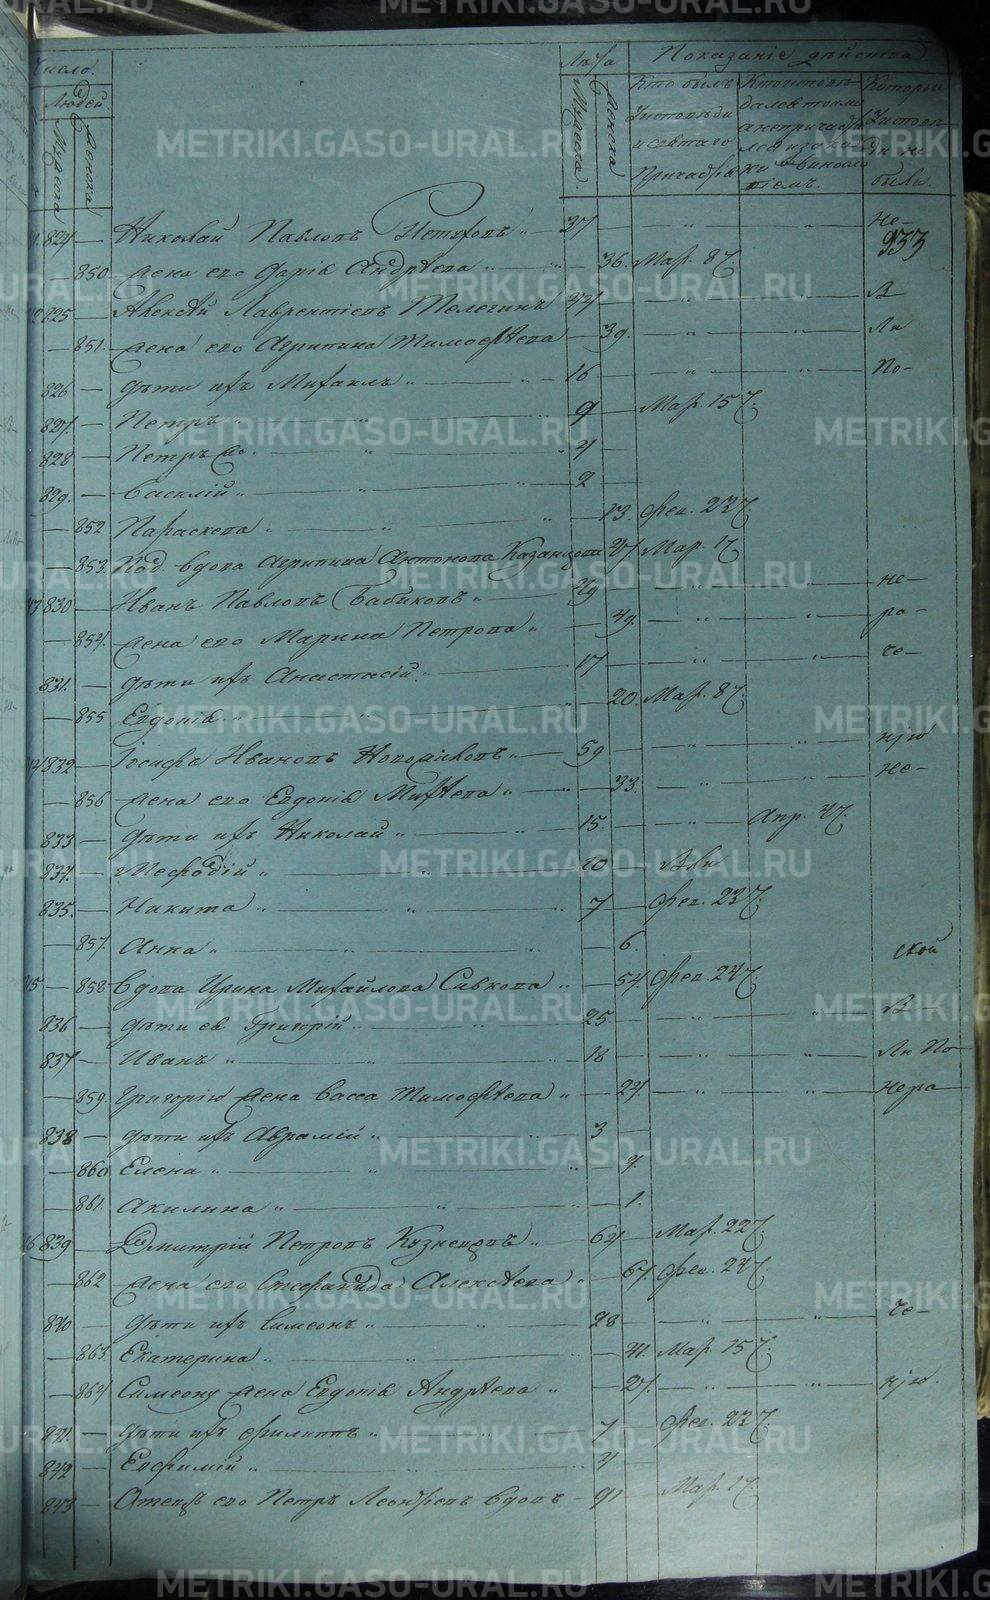 Число. Лѣта Показаніе дѣйства
Людей. Мужеска. Женска Кто былъ у исповѣди и святаго Причастія Которыи у исповѣди не были.
Мужеска Женска
933
824 — Николай Павловъ Петуховъ „ — 37 — „ „ не-
— 850 жена его Дарія Андрѣева „ „ — 36. Мар. 8 7.
825 — Алексѣй Лаврентіевъ Телегинъ 47 — „ „ В
— 851. жена его Агрипина Тимофѣева — 39. — „ „ Ли
826 — дѣти ихъ Михаилъ „ — „ 16 — „ „ По-
827. — Петръ „ 9 — Мар. 15 7.
828 — Петръ 2й „ — „ — 4 —
829. — Василій „ — „ — „ — 2 —
— 852 Параскева „ — „ „ — 13. Фев. 23 7.
— 853. Под. вдова Агрипина Антонова Казанцова 47 Мар. 1 7.
830 — Иванъ Павловъ Бабиковъ „ — 49 — „ „ не-
— 854. жена его Марина Петрова „ — 49. — „ „ ра-
831. — дѣти ихъ Анастасій „ — 17 — „ „ че-
— 855 Евдокія „ — „ „ — 20. Мар. 8 7.
832 — Іосифъ Ивановъ „ — 59 — „ „ нію
— 856 жена его Евдокія Михѣева „ — „ — 33. — „ „ не-
833 — дѣти ихъ Николай „ — „ — 15. — „ Апр. 4 7.
834. — Меѳодій „ — „ — 10 —
835. — Никита „ — „ — „ 7 — Фев. 23 7.
— 857. Анна „ — „ — „ — 6.
ской
— 858 Вдова Ирина Михайлова Сивкова „ — 54. Фев. 24 7.
836 — дѣти ея Григорій „ — „ — 25. — „ „ В
837 — Иванъ „ — „ — „ — 18 — „ „ Ли По
— 859. Григорію жена Васса Тимофѣева „ — 24. — „ „ нера
838 — дѣти ихъ Аврамій „ — „ 3 —
— 860 Елена „ — „ — „ — 4.
— 861. Акилина „ — „ — „ — 1.
839 — Дмитрій Петровъ Кузнецовъ „ — 64 — Мар. 22 7.
— 862 жена его Стефанида Алексѣева „ — 67. Фев. 24 7.
840 — дѣти ихъ Симеонъ „ — „ — 28 — „ „ че-
— 863. Екатерина „ — „ — „ — 41. Мар. 15 7.
— 864 Симеону жена Евдокія Андрѣева „ — 27. — „ „ нію.
841. — дѣти ихъ Филиппъ „ — „ — 7 — Фев. 23 7.
842 — Евфимій „ — „ — „ 4 —
843 — Отецъ его Петръ Леонтіевъ вдовъ — 91 — Мар. 1 7.
METRIKI.GASO-URAL.RU